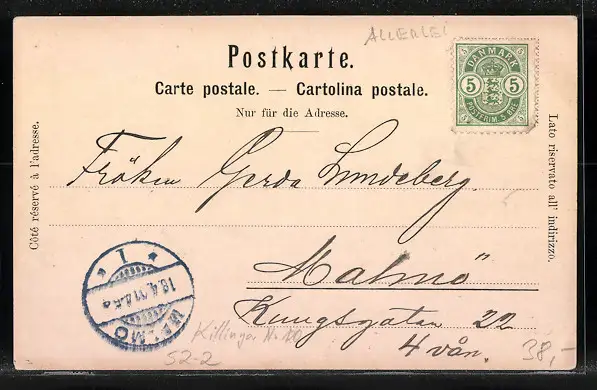 ALLERLEI
Postkarte.
DANMARK
5 5
POSTFRIM. 5 ØRE
Carte postale. — Cartolina postale.
Nur für die Adresse.
Côté réservé à l'adresse.
Lato riservato all' indirizzo.
Fröken Gerda Lundeberg.
Malmö
Kungsgatan 22
4 vån.
* 1 *
18.4.01
MALMÖ
Killinger No
52-2
38,-